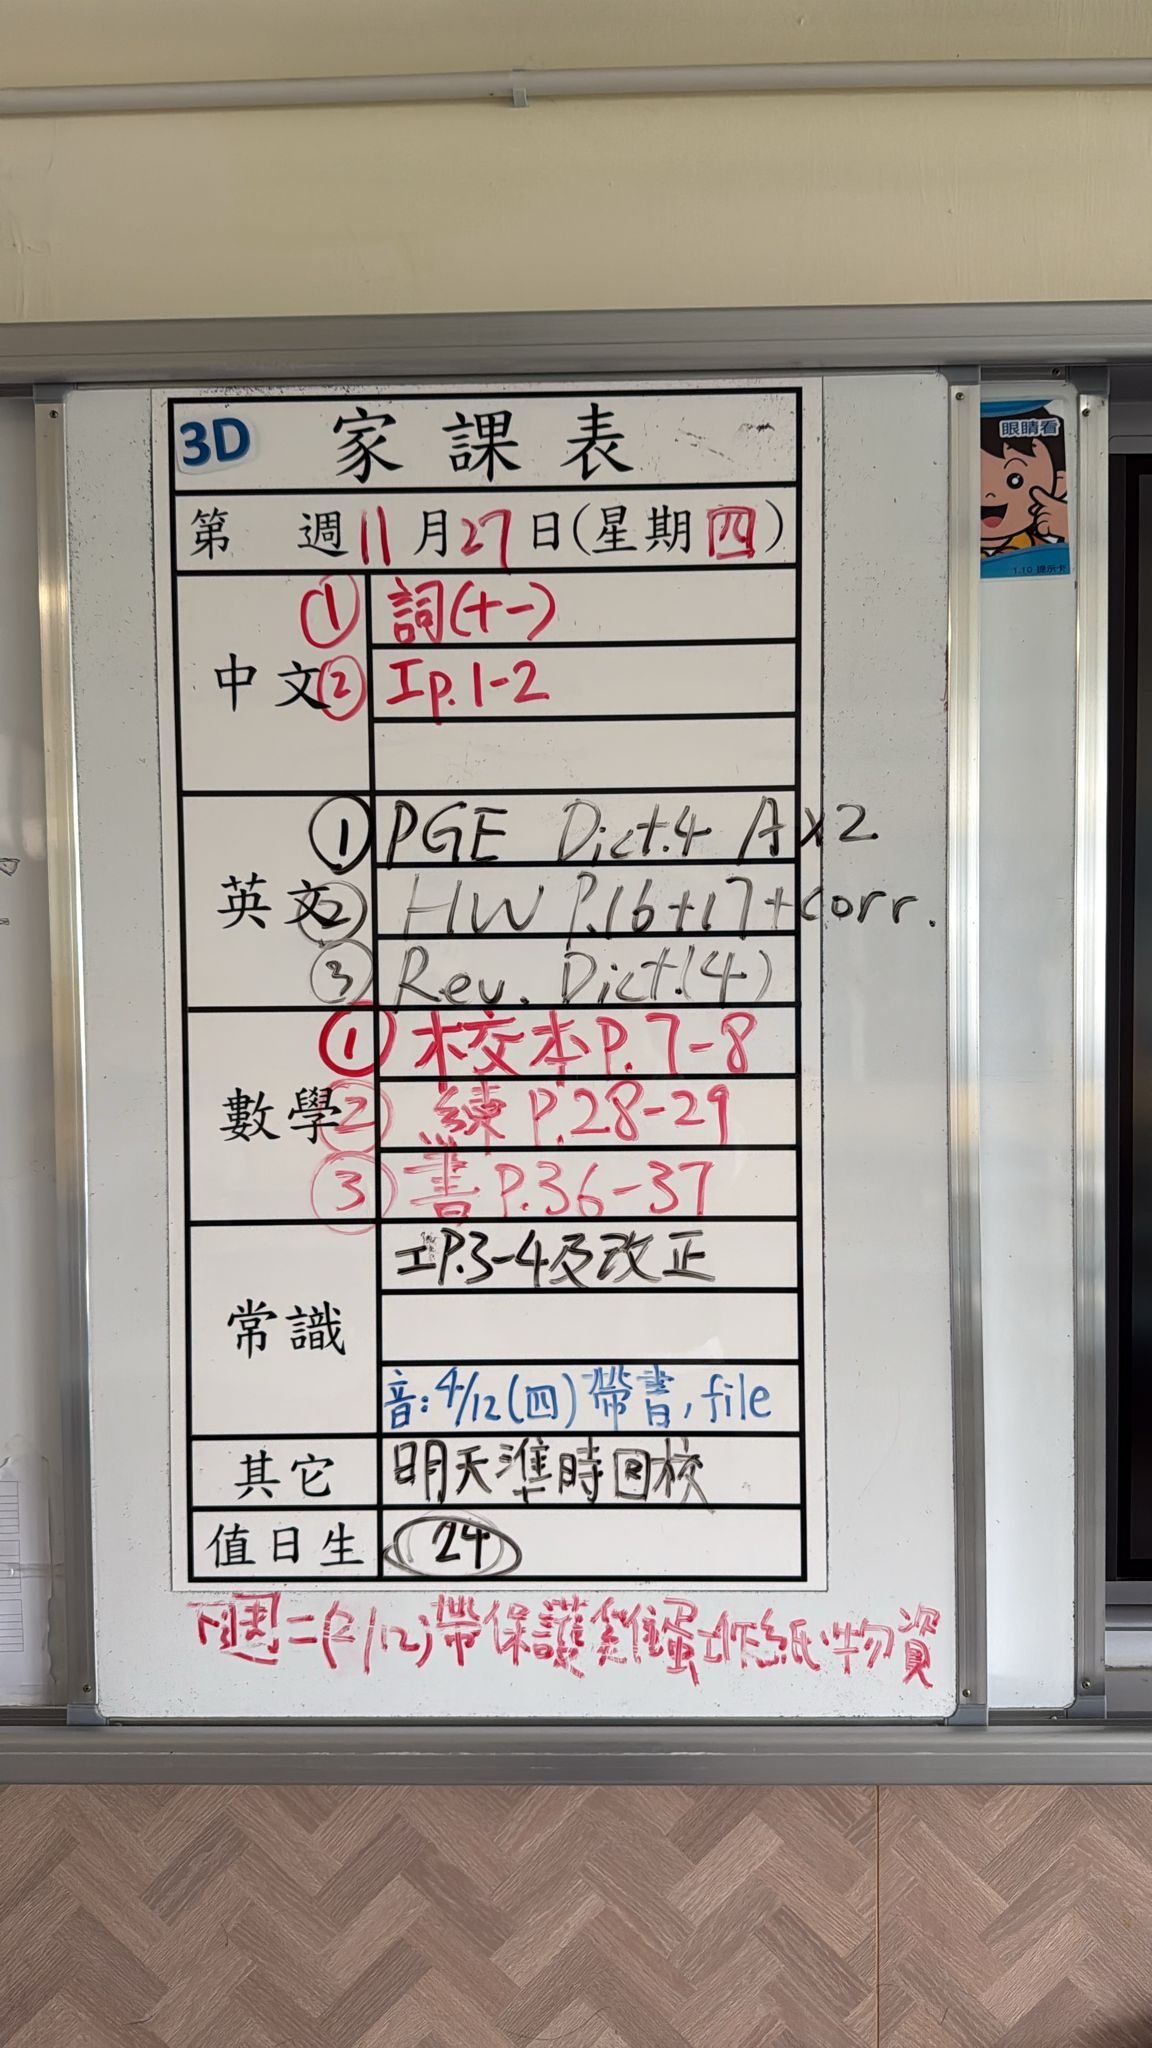 3D 家課表
第 週 11 月 27 日(星期 四)
中文
① 詞(十一)
② 工p.1-2
英文
① PGE Dict.4 A×2
② HW P.16+17+corr.
③ Rev. Dict.(4)
數學
① 校本P.7-8
② 練 P.28-29
③ 書 P.36-37
常識
工P.3-4及改正
音:4/12(四)帶書,file
其它 明天準時回校
值日生 24
下週二(2/12)帶保護雞蛋 物資
眼睛看
1.10 提示卡